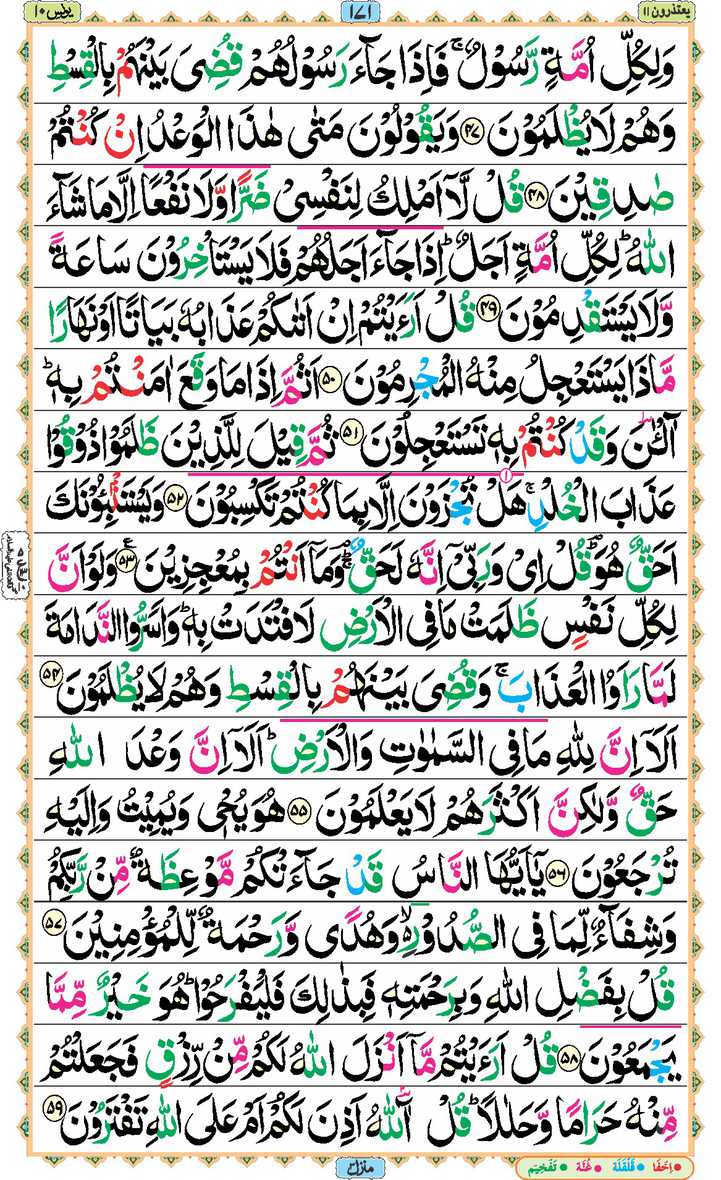 يعتذرون ١١
١٧١
يونس ١٠
وَلِكُلِّ اُمَّةٍ رَّسُوْلٌ ۚ فَاِذَا جَآءَ رَسُوْلُهُمْ قُضِىَ بَيْنَهُمْ بِالْقِسْطِ
وَهُمْ لَا يُظْلَمُوْنَ ﴿۴۷﴾ وَيَقُوْلُوْنَ مَتٰى هٰذَا الْوَعْدُ اِنْ كُنْتُمْ
صٰدِقِيْنَ ﴿۴۸﴾ قُلْ لَّاۤ اَمْلِكُ لِنَفْسِىْ ضَرًّا وَّلَا نَفْعًا اِلَّا مَا شَآءَ
اللّٰهُ ؕ لِكُلِّ اُمَّةٍ اَجَلٌ ؕ اِذَا جَآءَ اَجَلُهُمْ فَلَا يَسْتَاْخِرُوْنَ سَاعَةً
وَّلَا يَسْتَقْدِمُوْنَ ﴿۴۹﴾ قُلْ اَرَءَيْتُمْ اِنْ اَتٰىكُمْ عَذَابُهٗ بَيَاتًا اَوْ نَهَارًا
مَّاذَا يَسْتَعْجِلُ مِنْهُ الْمُجْرِمُوْنَ ﴿۵۰﴾ اَثُمَّ اِذَا مَا وَقَعَ اٰمَنْتُمْ بِهٖ ؕ
آٰلْـٰٔنَ وَقَدْ كُنْتُمْ بِهٖ تَسْتَعْجِلُوْنَ ﴿۵۱﴾ ثُمَّ قِيْلَ لِلَّذِيْنَ ظَلَمُوْا ذُوْقُوْا
عَذَابَ الْخُلْدِ ۚ هَلْ تُجْزَوْنَ اِلَّا بِمَا كُنْتُمْ تَكْسِبُوْنَ ﴿۵۲﴾ وَيَسْتَنْۢبِـُٔوْنَكَ
اَحَقٌّ هُوَ ؕ قُلْ اِىْ وَرَبِّىْۤ اِنَّهٗ لَحَقٌّ ؕ وَمَاۤ اَنْتُمْ بِمُعْجِزِيْنَ ﴿۵۳﴾ وَلَوْ اَنَّ
لِكُلِّ نَفْسٍ ظَلَمَتْ مَا فِى الْاَرْضِ لَافْتَدَتْ بِهٖ ؕ وَاَسَرُّوا النَّدَامَةَ
لَمَّا رَاَوُا الْعَذَابَ ۚ وَقُضِىَ بَيْنَهُمْ بِالْقِسْطِ وَهُمْ لَا يُظْلَمُوْنَ ﴿۵۴﴾
اَلَاۤ اِنَّ لِلّٰهِ مَا فِى السَّمٰوٰتِ وَالْاَرْضِ ؕ اَلَاۤ اِنَّ وَعْدَ اللّٰهِ
حَقٌّ وَّلٰكِنَّ اَكْثَرَهُمْ لَا يَعْلَمُوْنَ ﴿۵۵﴾ هُوَ يُحْىٖ وَيُمِيْتُ وَاِلَيْهِ
تُرْجَعُوْنَ ﴿۵۶﴾ يٰۤاَيُّهَا النَّاسُ قَدْ جَآءَتْكُمْ مَّوْعِظَةٌ مِّنْ رَّبِّكُمْ
وَشِفَآءٌ لِّمَا فِى الصُّدُوْرِ ۙ وَهُدًى وَّرَحْمَةٌ لِّلْمُؤْمِنِيْنَ ﴿۵۷﴾
قُلْ بِفَضْلِ اللّٰهِ وَبِرَحْمَتِهٖ فَبِذٰلِكَ فَلْيَفْرَحُوْا ؕ هُوَ خَيْرٌ مِّمَّا
يَجْمَعُوْنَ ﴿۵۸﴾ قُلْ اَرَءَيْتُمْ مَّاۤ اَنْزَلَ اللّٰهُ لَكُمْ مِّنْ رِّزْقٍ فَجَعَلْتُمْ
مِّنْهُ حَرَامًا وَّحَلٰلًا ؕ قُلْ آٰللّٰهُ اَذِنَ لَكُمْ اَمْ عَلَى اللّٰهِ تَفْتَرُوْنَ ﴿۵۹﴾
منزل ۳
اِخْفَا قَلْقَلَه غُنَّه تَفْخِيْم